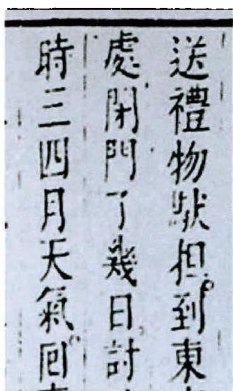 送禮物担。到東
處閉門了幾日。計
時三四月天氣。囘